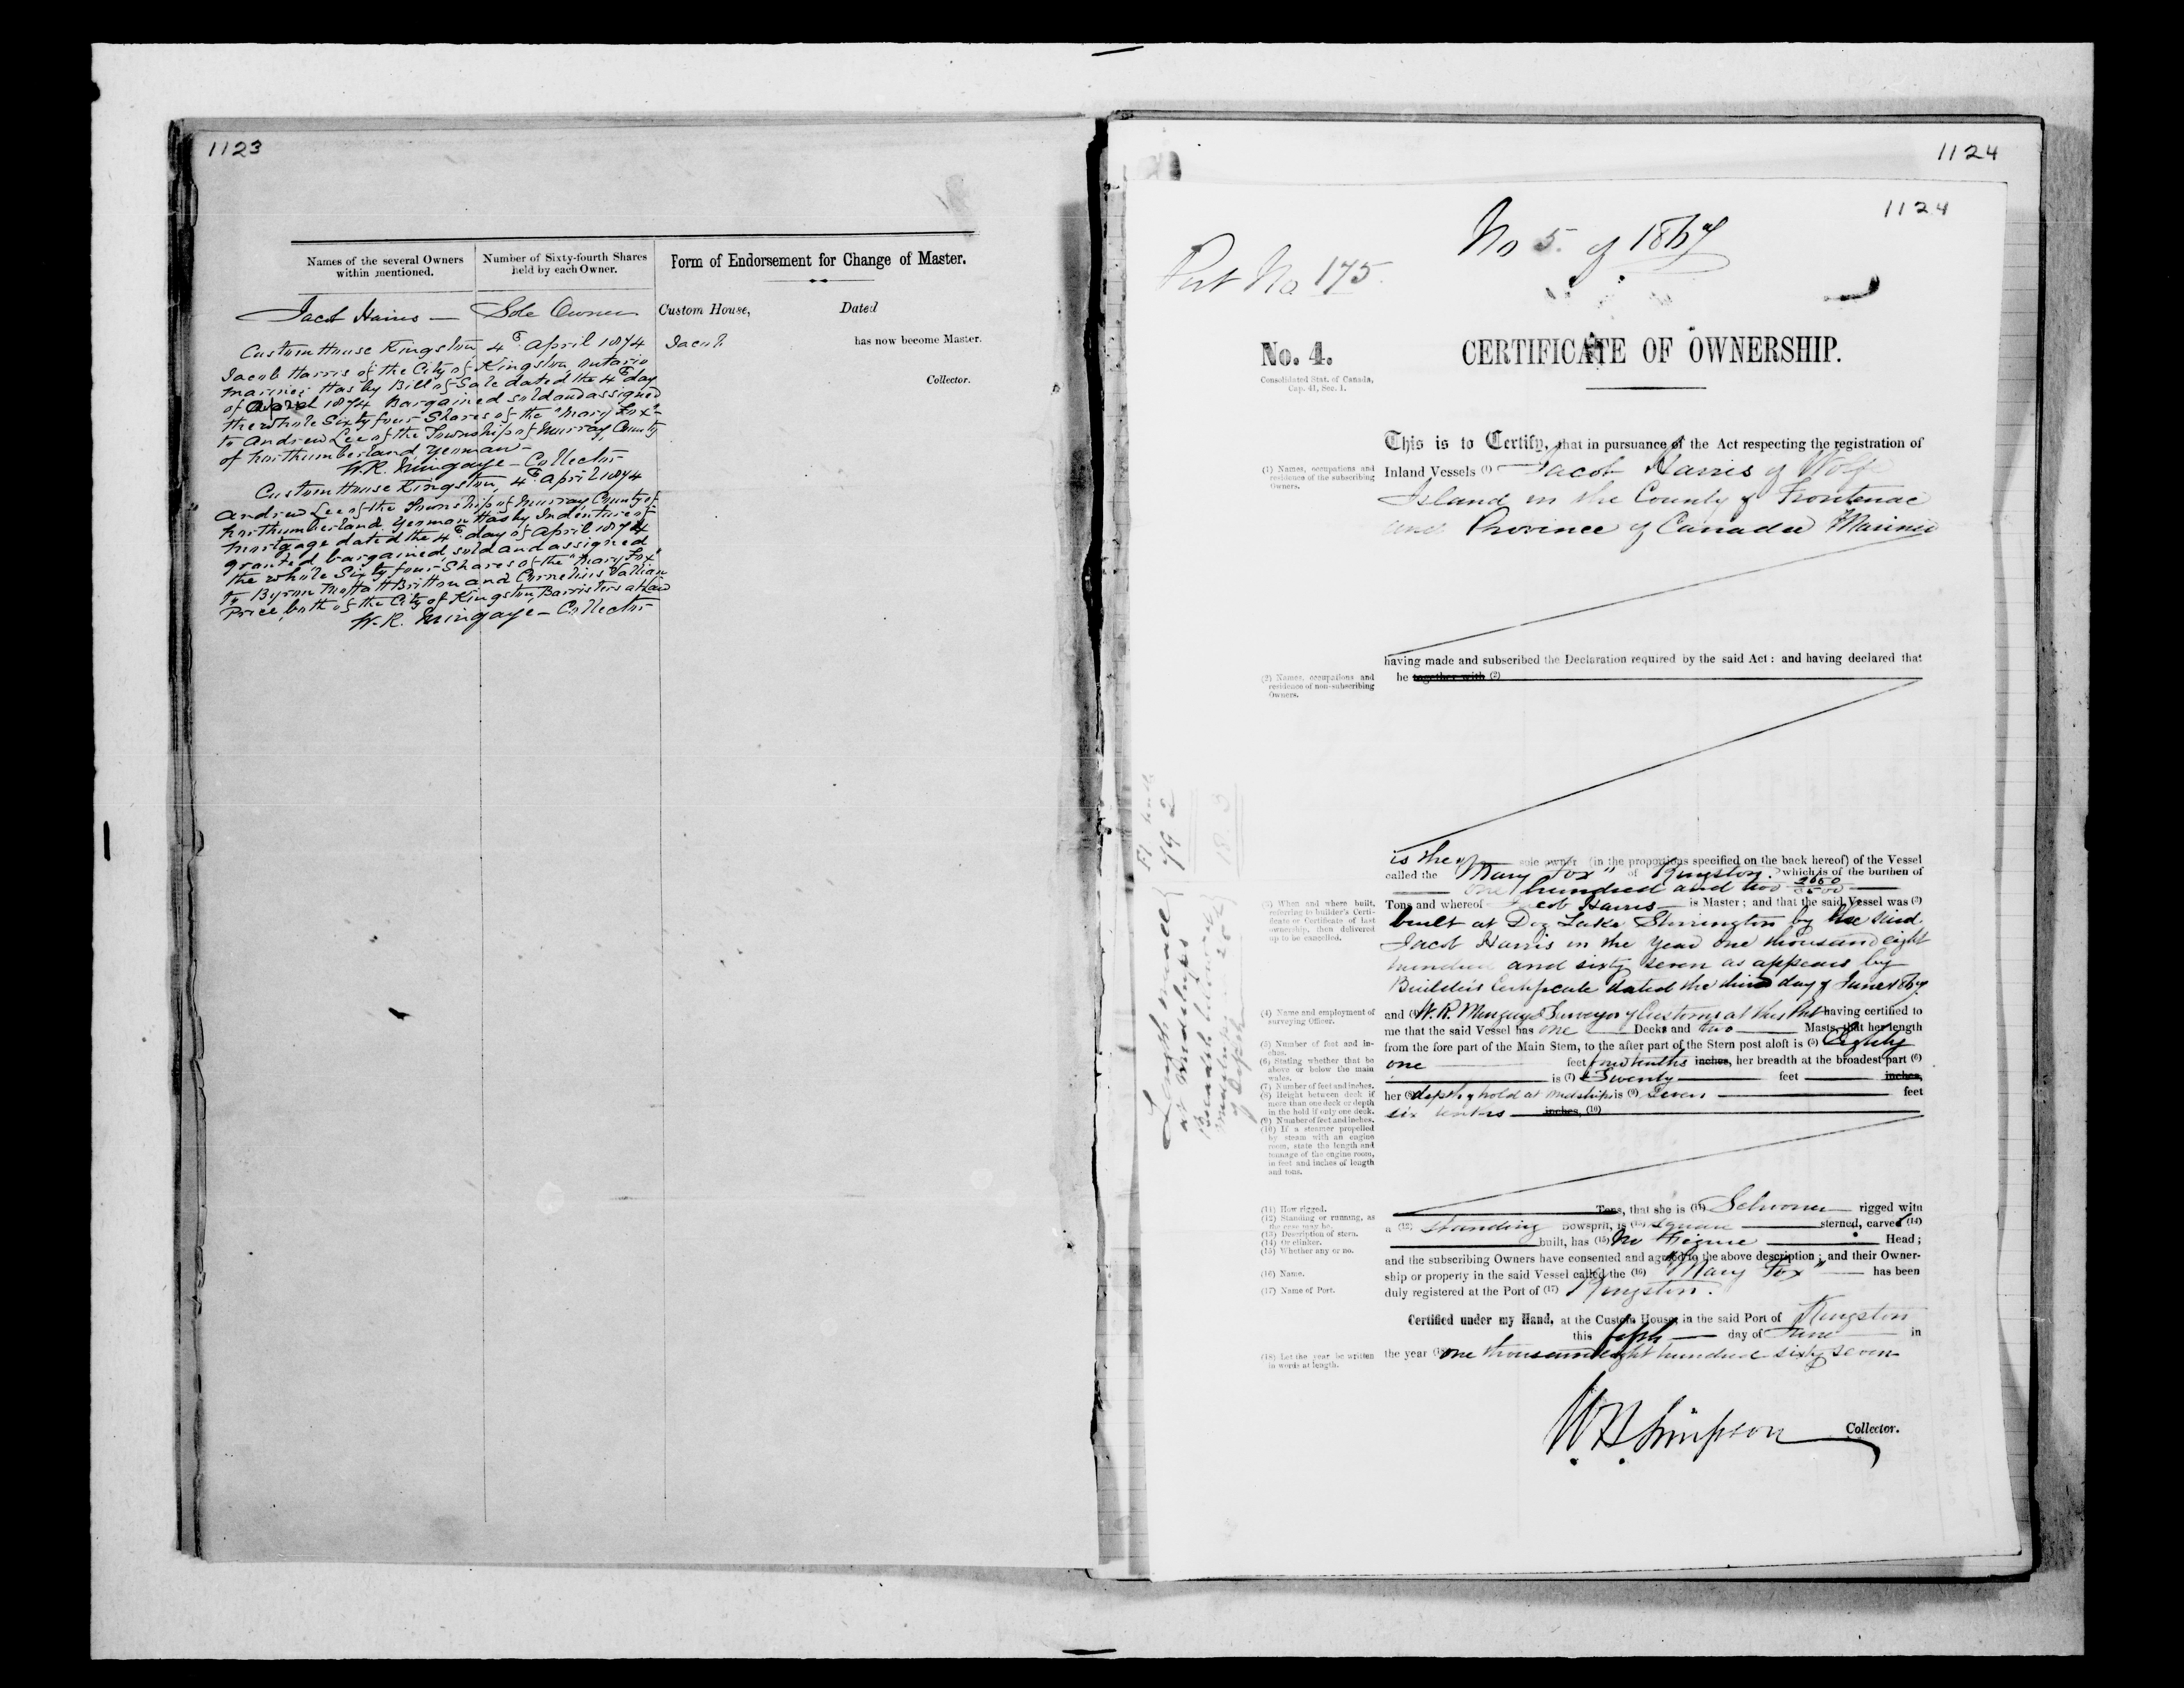 1123
Names of the several Owners within mentioned.
Number of Sixty-fourth Shares held by each Owner.
Form of Endorsement for Change of Master.
Jacob Harris — Sole Owner
Custom House, Dated
Jacob has now become Master.
Collector.
Custom House Kingston 4th April 1874
Jacob Harris of the City of Kingston Ontario
Mariner Has by Bill of Sale dated the 4th day
of April 1874 Bargained sold and assigned
the whole Sixty four Shares of the "Mary Fox"
to Andrew Lee of the Township of Murray County
of Northumberland, yeoman —
W.R. Mingaye — Collector
Custom House Kingston, 4th April 1874
Andrew Lee of the Township of Murray County of
Northumberland Yeoman Has by Indenture of
Mortgage dated the 4th day of April 1874
granted, bargained, sold and assigned
the whole Sixty four Shares of the "Mary Fox"
to Byron Moffatt Britton and Cornelius Vallian
Price, both of the City of Kingston, Barristers at Law
W.R. Mingaye — Collector
1124
1124
No 5. of 1867
Port No 175
No. 4.
Consolidated Stat. of Canada,
Cap. 41, Sec. 1.
CERTIFICATE OF OWNERSHIP.
This is to Certify, that in pursuance of the Act respecting the registration of
(1) Names, occupations and residence of the subscribing Owners.
Inland Vessels (1) Jacob Harris of Wolfe
Island in the County of Frontenac
and Province of Canada Mariner
having made and subscribed the Declaration required by the said Act: and having declared that
(2) Names, occupations and residence of non-subscribing Owners.
he together with (2)
is the sole owner (in the proportions specified on the back hereof) of the Vessel
called the "Mary Fox" of Kingston. which is of the burthen of
one hundred and two
(3) When and where built, referring to builder's Certificate or Certificate of last ownership, then delivered up to be cancelled.
Tons and whereof Jacob Harris is Master; and that the said Vessel was (3)
built at Dog Lake Storrington by the said
Jacob Harris in the year one thousand eight
hundred and sixty seven as appears by
Builders Certificate dated the third day of June 1867
(4) Name and employment of surveying Officer.
and (4) W.R. Mingaye Surveyor of Customs at this Port having certified to
me that the said Vessel has one Decks and two Masts, that her length
(5) Number of feet and inches.
from the fore part of the Main Stem, to the after part of the Stern post aloft is (5) Eighty
(6) Stating whether that be above or below the main wales.
one feet four tenths inches, her breadth at the broadest part (6)
(7) Number of feet and inches.
is (7) Twenty feet inches,
(8) Height between deck if more than one deck or depth in the hold if only one deck.
her (8) depth of hold at midships is (9) Seven feet
(9) Number of feet and inches.
six tenths inches, (10)
(10) If a steamer propelled by steam with an engine room, state the length and tunnage of the engine room, in feet and inches of length and tons.
Length
at Midships
Breadth
(11) How rigged.
Tons, that she is (11) Schooner rigged with
(12) Standing or running, as the case may be.
a (12) standing Bowsprit, is (13) square sterned, carvel (14)
(13) Description of stern.
(14) Or clinker.
(15) Whether any or no.
built, has (15) No Figure Head;
and the subscribing Owners have consented and agreed to the above description; and their Owner-
(16) Name.
ship or property in the said Vessel called the (16) "Mary Fox" has been
(17) Name of Port.
duly registered at the Port of (17) Kingston.
Certified under my Hand, at the Custom House, in the said Port of Kingston
this fifth day of June in
(18) Let the year be written in words at length.
the year (18) one thousand eight hundred sixty seven
W B Simpson Collector.